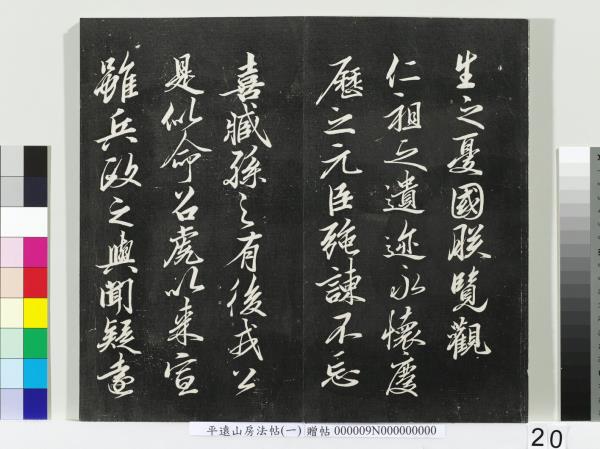 生之憂國朕覽觀
仁祖之遺迹永懷慶
歷之元臣強諫不忘
喜臧孫之有後戎公
是似命召虎以來宣
雖兵政之與聞疑遠
平遠山房法帖(一) 贈帖 000009N000000000
20